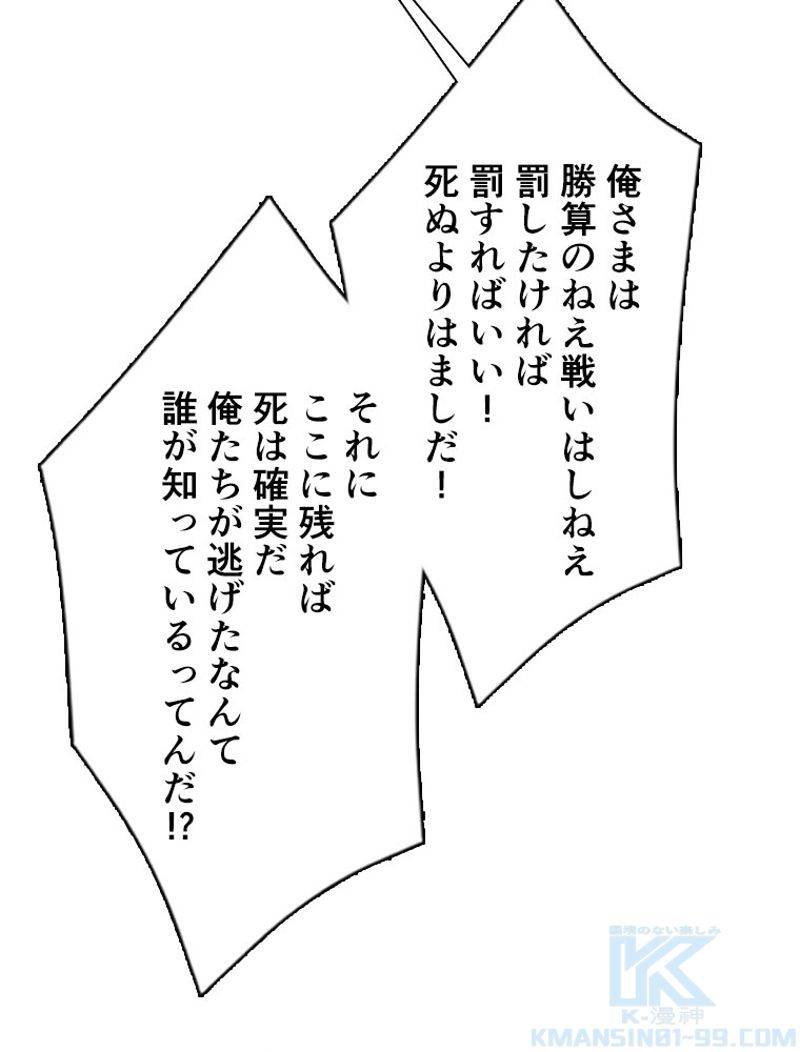 俺さまは
勝算のねえ戦いはしねえ
罰したければ
罰すればいい！
死ぬよりはましだ！
それに
ここに残れば
死は確実だ
俺たちが逃げたなんて
誰が知っているってんだ!?
境のない楽しみ
K-漫神
KMANSIN01-99.COM